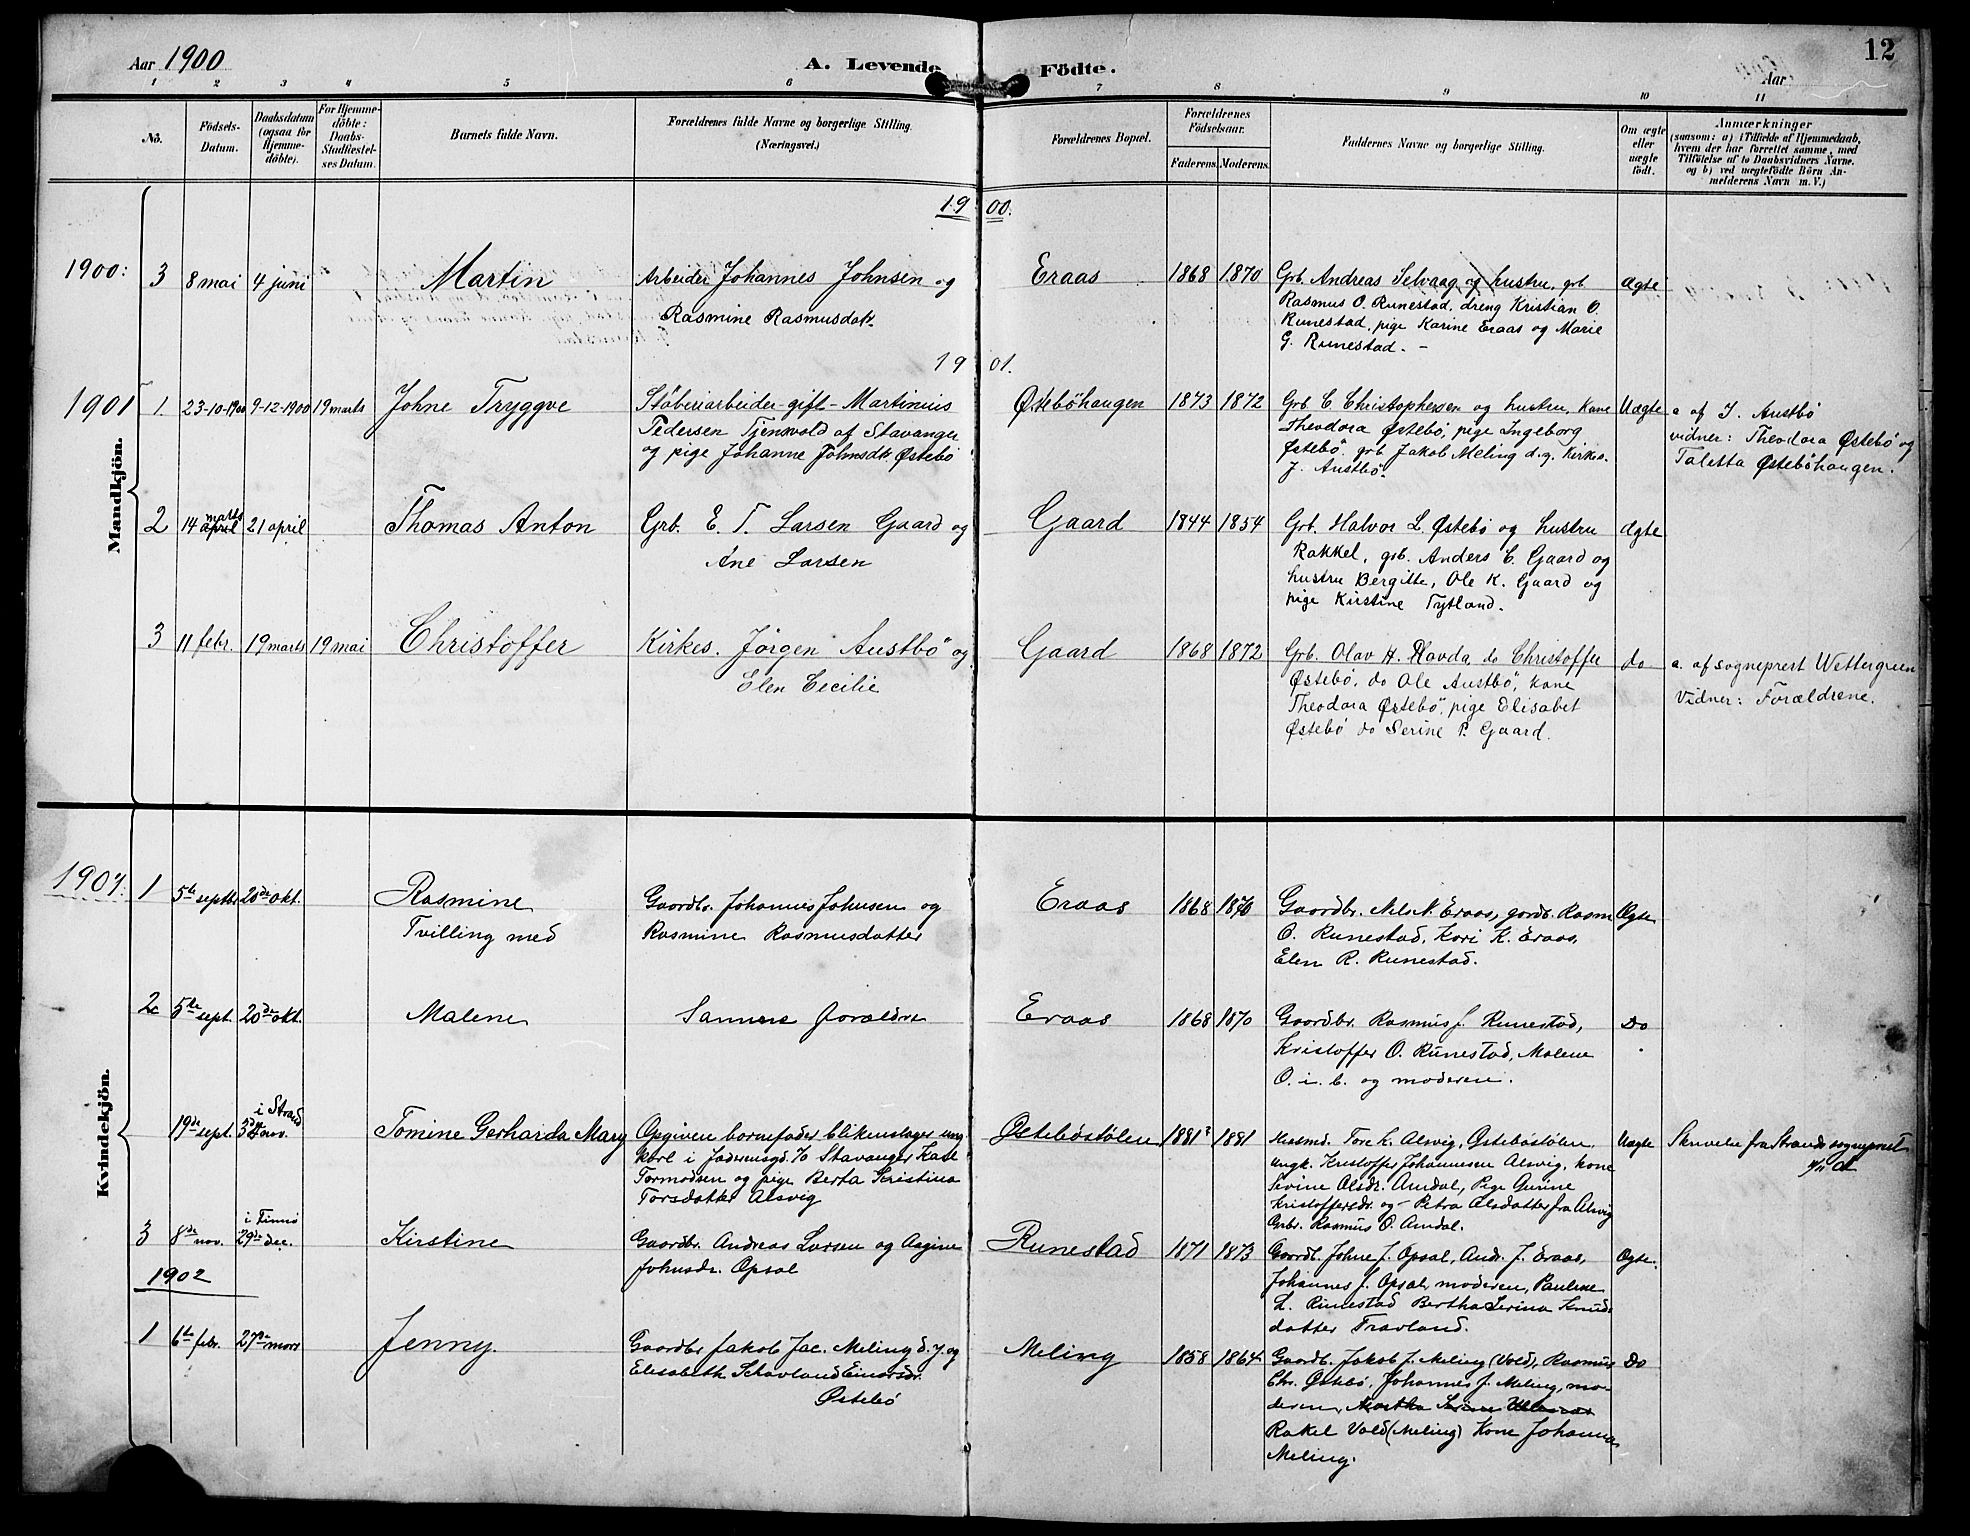 Aar 1900
A. Levende Födte.
Aar
12
1 2 3 4 5 6 7 8 9 10 11
No.
Födsels-Datum.
Daabsdatum (ogsaa for Hjemme-döbte).
For Hjemme-döbte: Daabs-Stadfæstel-ses Datum.
Barnets fulde Navn.
Forældrenes fulde Navne og borgerlige Stilling. (Næringsvei.)
Forældrenes Bopæl.
Forældrenes Födselsaar.
Faderens. Moderens.
Faddernes Navne og borgerlige Stilling.
Om ægte eller uægte födt.
Anmærkninger
(saasom: a) i Tilfælde af Hjemmedaab, hvem der har forrettet samme, med Tilföielse af to Daabsvidners Navne. og b) ved uægtefödte Börn An-melderens Navn m. V.)
Mandkjön.
19 00.
1900: 3 8 mai 4 juni Martin
Arbeider Johannes Johnsen og
Rasmine Rasmusdatr.
Eraas 1868 1870
Grb. Andreas Selvaag og hustru, grb
Rasmus O. Runestad, dreng Kristian O.
Runestad, pige Karine Eraas og Marie
G. Runestad. –
Ægte
19 01.
1901 1 23-10-1900 9-12-1900 19 marts Johne Tryggve
Støberiarbeider gift – Martinius
Pedersen Tjensvold af Stavanger
og pige Johanne Johnsdtr Østebö
Østeböhaugen 1873 1872
Grb. C Christophersen og hustru, kone
Theodora Østebö, pige Ingeborg
Østebö, grb Jakob Meling d.y. Kirkes.
J. Austbö
Uægte
a af J. Austbö
vidner: Theodora Østebö og
Taletta Østeböhaugen.
2 14 april marts 21 april Thomas Anton
Grb. E. T. Larsen Gaard og
Ane Larsen
Gaard 1844 1854
Grb. Halvor L. Østebö og hustru
Rakkel, grb. Anders C. Gaard og
hustru Bergitte, Ole K. Gaard og
pige Kirstine Tytland.
Ægte
3 11 febr. 19 marts 19 mai Christoffer
Kirkes. Jörgen Austbö og
Elen Cecilie
Gaard 1868 1872
Grb. Olav H. Havda do Christoffer
Østebö, do Ole Austbö, kone
Theodora Østebö, pige Elisabet
Østebö do Serine P. Gaard.
do
a. af sogneprest Wettergreen
Vidner: Forældrene.
Kvindekjön.
1901: 1 5te septbr 20de okt. Rasmine
Tvilling med
Gaardbr. Johannes Johnsen og
Rasmine Rasmusdatter
Eraas 1868 1870
Gaardbr. Nels N. Eraas, gardb. Rasm
O. Runestad, Kari K. Eraas,
Elen R. Runestad.
Ægte
2 5te sept. 20de okt. Malene
Samme foraldre
Eraas 1868 1870
Gaardbr. Rasmus J. Runestad,
Kristoffer O. Runestad, Malene
O. i. b. og moderen.
Do
19de sept. i Strand 3de nov. Tomine Gerharda Mary
Opgiven barnefader blikenslager ung
karl i Jaderensgd. 10 Stavanger Karl
Tormodsen og pige Berta Kristina
Torsdatter Alsvig
Østebøstølen 1881? 1881
Husmd. Tore L. Alsvig, Østebøstølen,
ungk. Kristoffer Johannesen Alsvig, kone
Sevine Olsdr. Amdal, Pige Gurine
Kristoffersdr. og – Petra Olsdatter fra Alsvig
Grbr. Rasmus O. Amdal.
Uægte
Skrivelse fra Strands sogneprest
3 8de nov. i Finnö 29de dec. Kirstine
Gaardbr. Andreas Larsen og Asgine
Johnsdr. Opsal
Runestad 1871 1873
Gaardb. Johne J. Opsal, Andr. J. Eraas,
Johannes J. Opsal, moderen, Pauline
L. Runestad Bertha Serina Knuds
datter Travland.
Ægte.
1902
1 6te febr. 27de mars Jenny.
Gaardbr Jakob Jac. Meling d. y. og
Elisabeth Schavland Einarsdr.
Østebø
Meling 1858 1864
Gaardb. Jakob J. Meling (Vold), Rasmus
Chr. Østebø, Johannes J. Meling, mo-
deren, Martha Serine
Rakel Vold (Meling) Kone Johanna
Meling.
Do